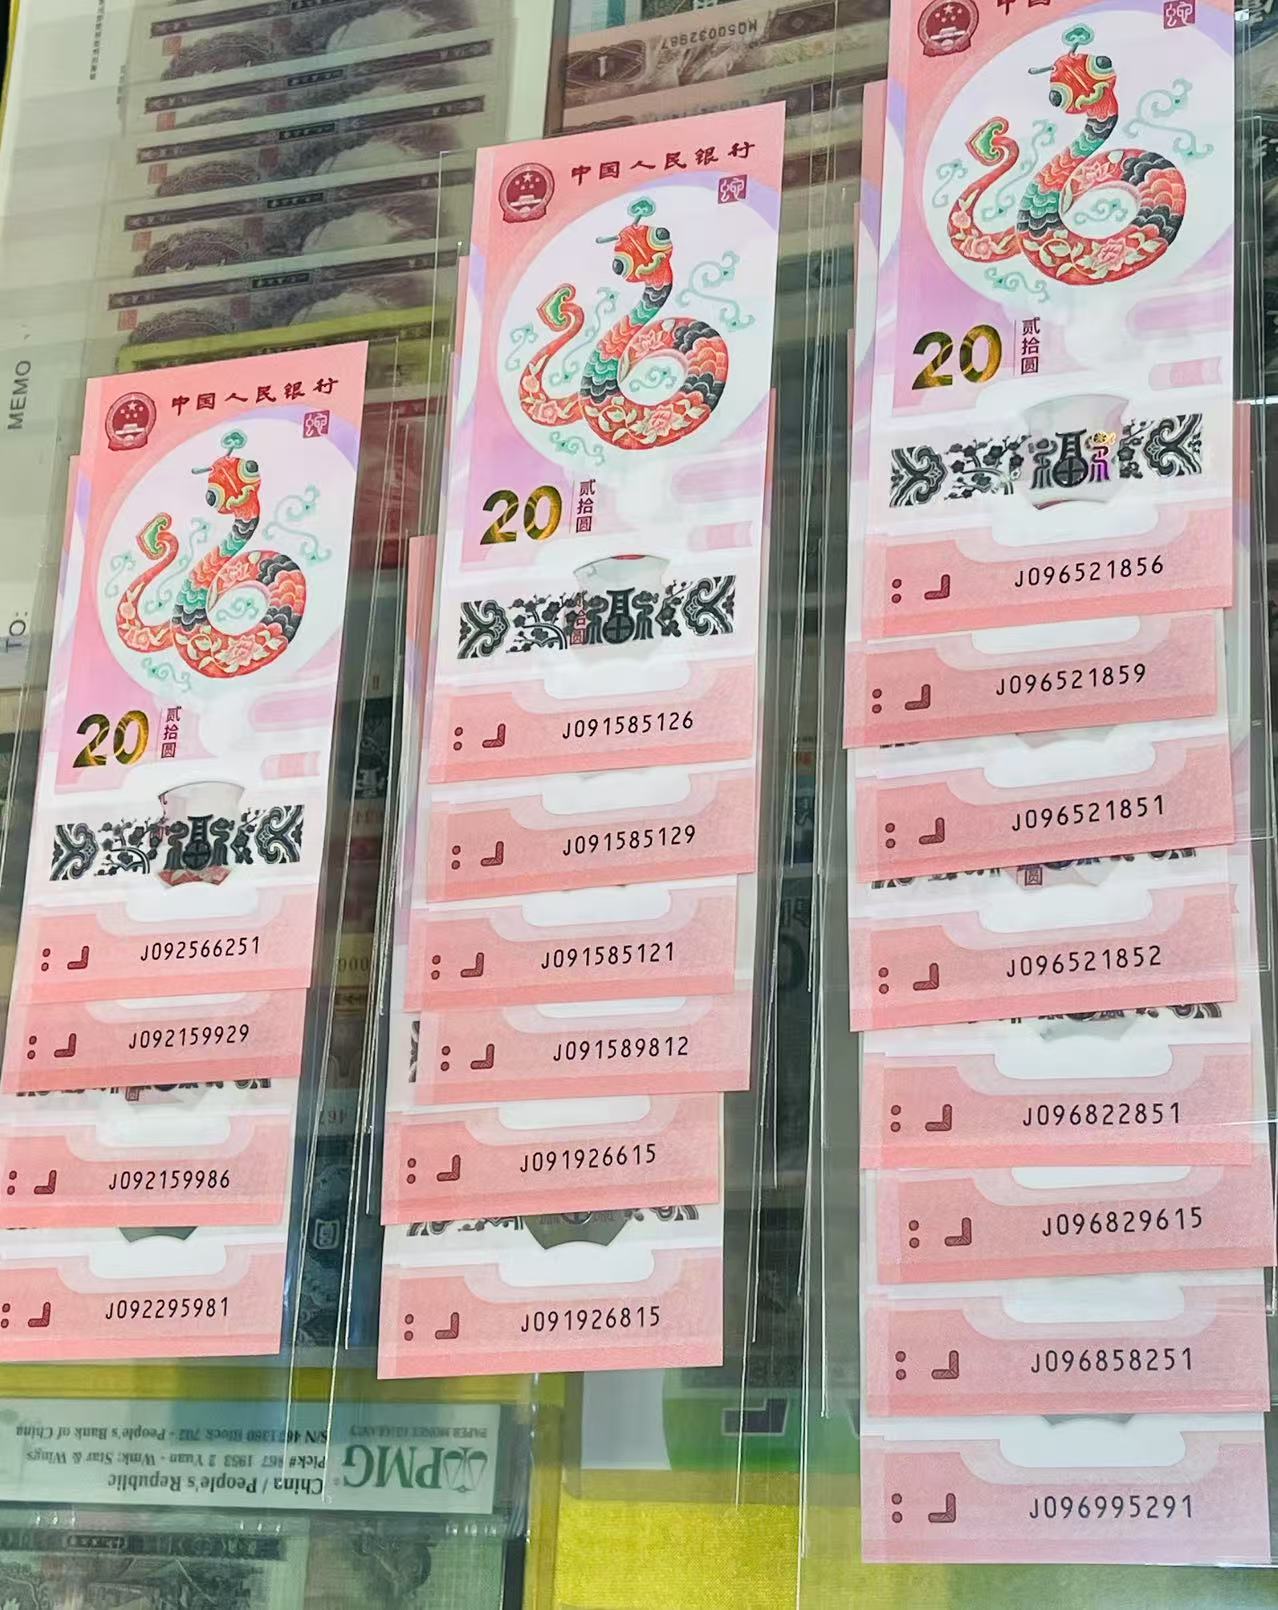 MEMO
TO:
MQ50032987
中国人民银行
20
贰拾圆
福
J092566251
J092159929
J092159986
J092295981
中国人民银行
20
贰拾圆
贰拾圆
福
J091585126
J091585129
J091585121
J091589812
J091926615
J091926815
中国
20
贰拾圆
福
J096521856
J096521859
J096521851
圆
J096521852
J096822851
J096829615
J096858251
J096995291
PMG
PAPER MONEY GUARANTY
China / People's Republic
Pick# 867 1953 2 Yuan - Wmk: Star & Wings
S/N 4671380 Block 702 - People's Bank of China